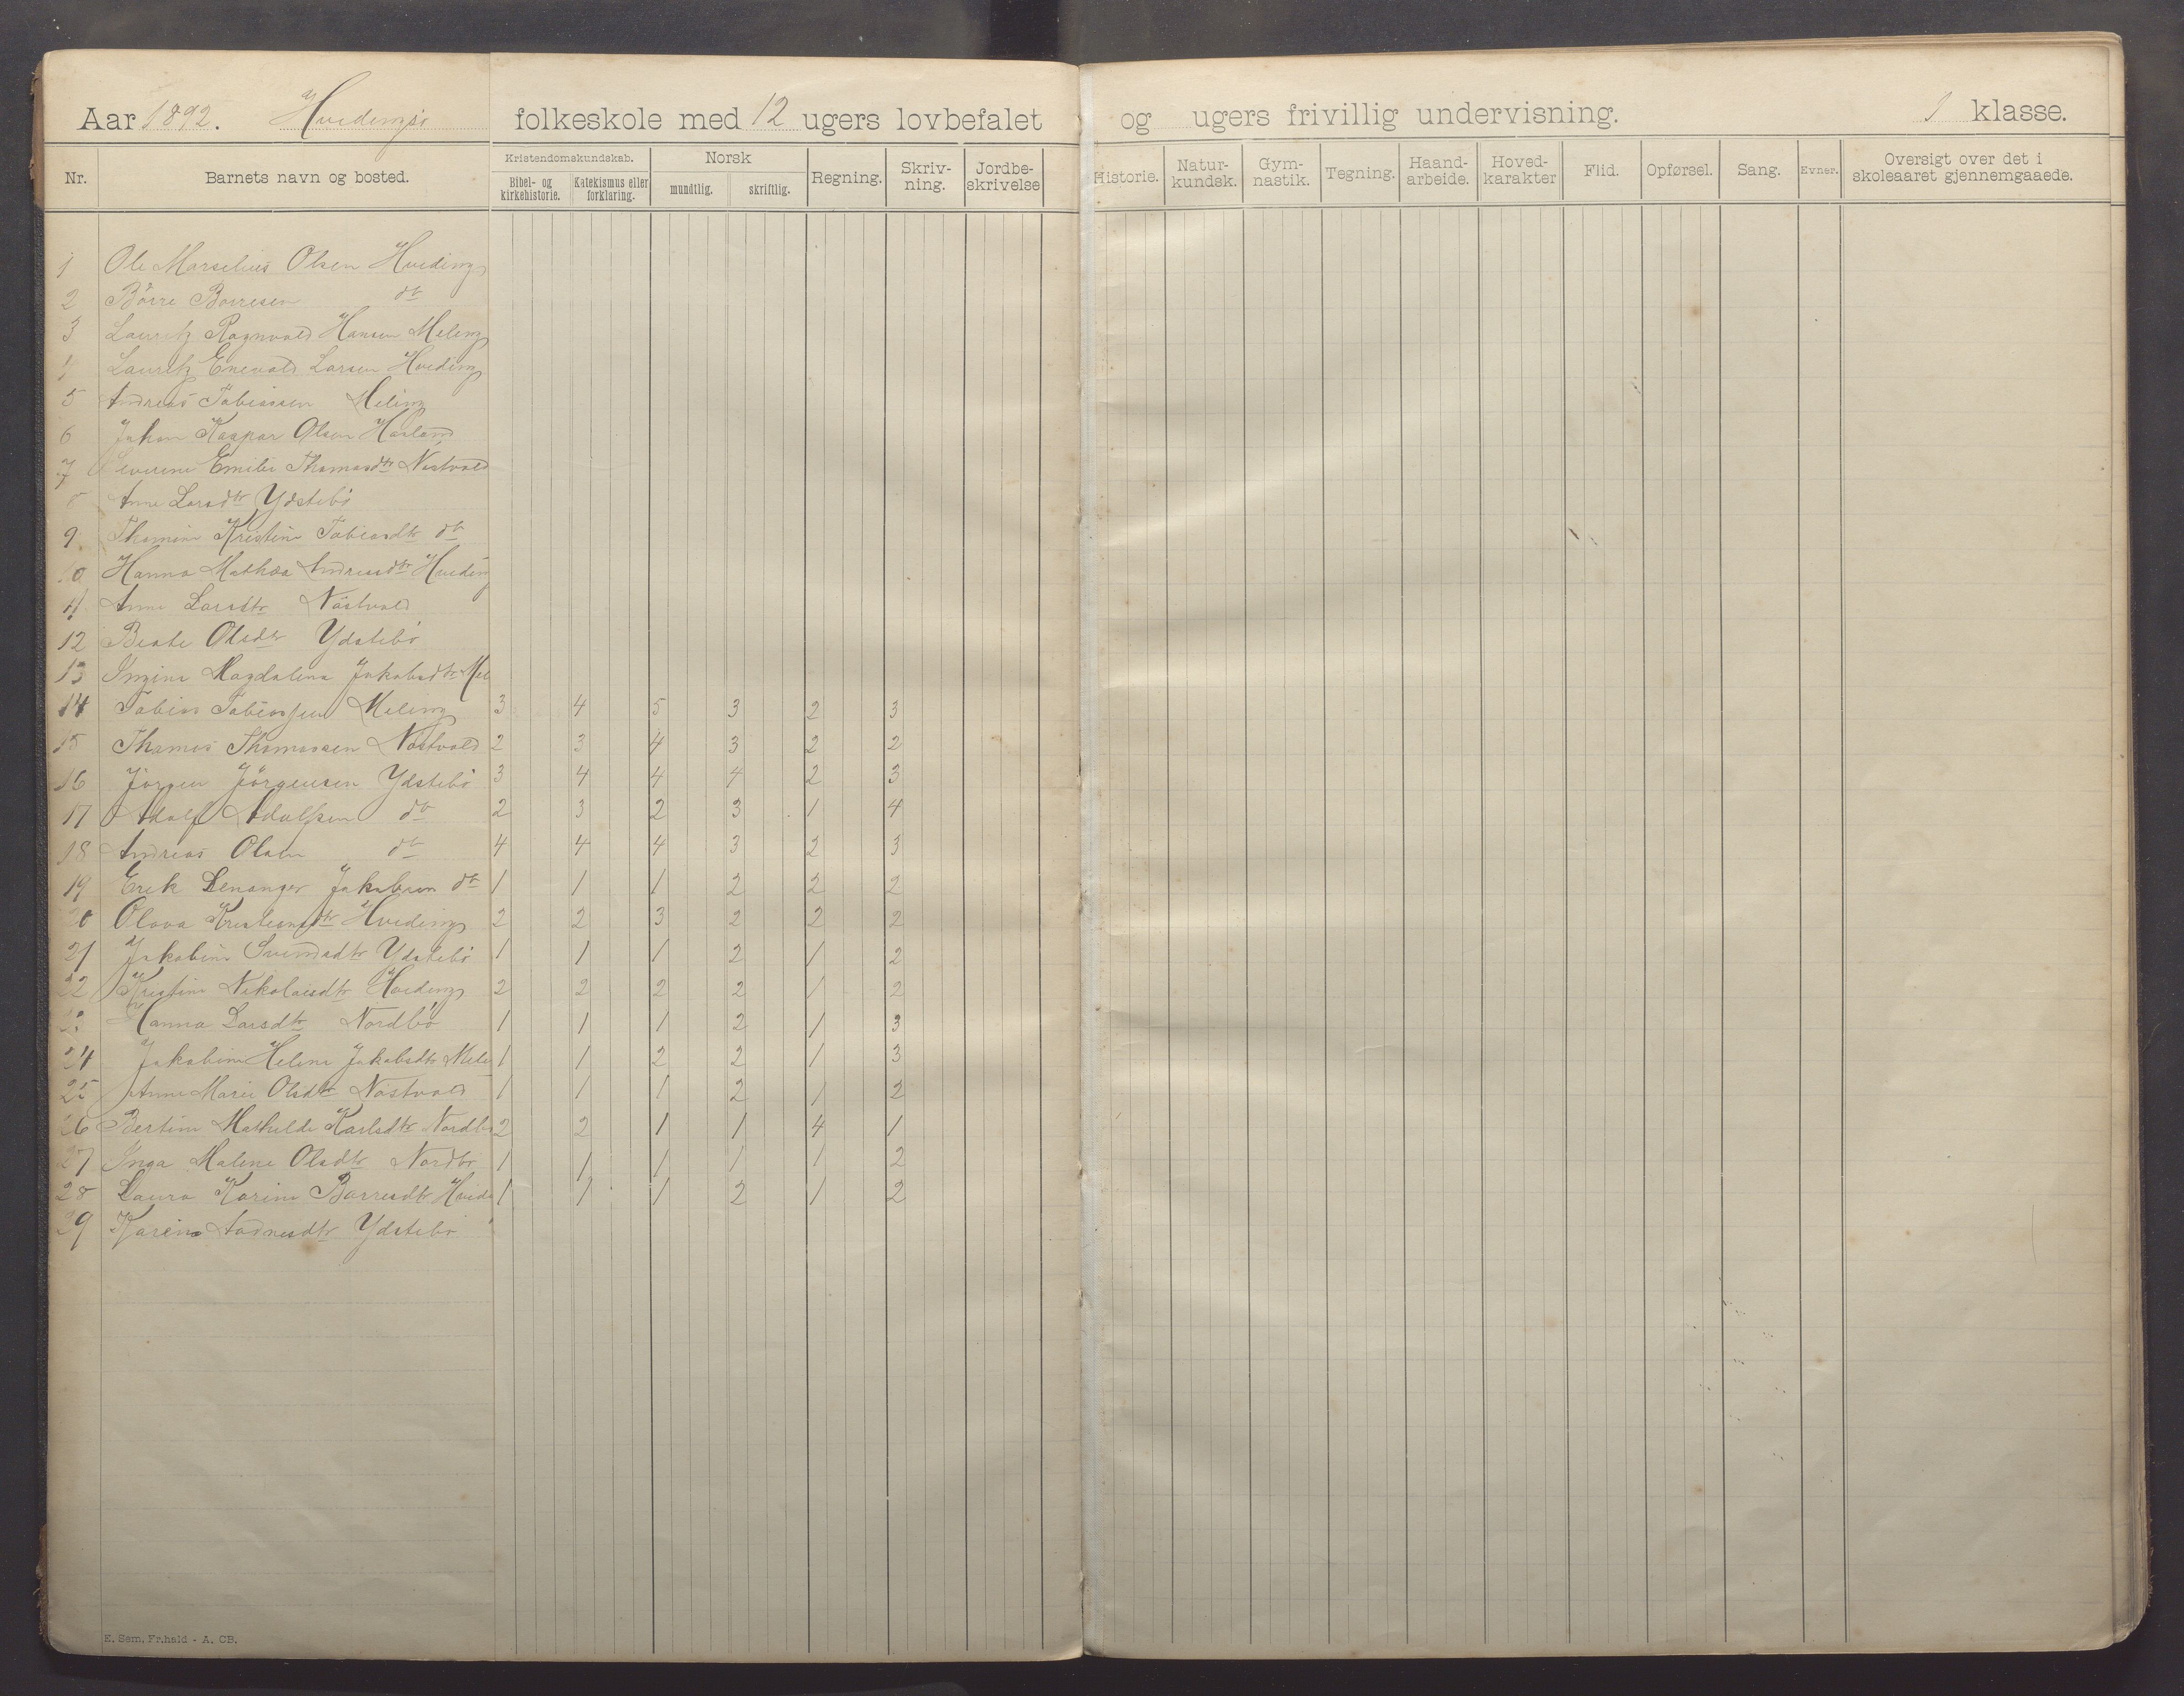 Aar 1892. Hvedingsö folkeskole med 12 ugers lovbefalet og ugers frivillig undervisning. 1 klasse.
Nr. Barnets navn og bosted. Kristendomskundskab. Bibel- og kirkehistorie. Katekismus eller forklaring. Norsk mundtlig. skriftlig. Regning. Skriv-ning. Jordbe-skrivelse Historie. Natur-kundsk. Gym-nastik. Tegning. Haand-arbeide. Hoved-karakter Flid. Opførsel. Sang. Evner. Oversigt over det i skoleaaret gjennemgaaede.
1 Ole Marselius Olsen Hveding
2 Börre Borresen dt
3 Lauritz Ragnvald Hansen Meling
4 Lauritz Enevald Larsen Hveding
5 Andreas Tobiassen Meling
6 Johan Kaspar Olsen Haaland
7 Severine Emilie Thomasdtr Nästvold
8 Anne Larsdtr Ydstebö
9 Thomine Kristine Tobiasdtr dt
10 Hanna Mathea Andreasdtr Hveding
11 Anne Larsdtr Nästvold
12 Beate Olsdtr Ydstebö
13 Ingine Magdalena Jakobsdtr Mel
14 Tobias Tobiassen Meling 3 4 5 3 2 3
15 Thomas Thomassen Nästvold 2 3 4 3 2 2
16 Jörgen Jörgensen Ydstebö 3 4 4 4 2 3
17 Adolf Adolfsen dt 2 3 2 3 1 4
18 Andreas Olsen dt 4 4 4 3 2 3
19 Erik Lenanger Jakobsen dt 1 1 1 2 2 2
20 Olava Kristiansdtr Hveding 2 2 3 2 2 2
21 Jakobine Svendsdtr Ydstebö 1 1 1 2 1 2
22 Kristine Nikolaisdtr Hveding 2 2 2 2 1 2
23 Hanna Larsdtr Nordbö 1 1 1 2 1 3
24 Jakobine Helene Jakobsdtr Mele 1 1 2 2 1 3
25 Anne Marie Olsdtr Nästvold 1 1 1 2 1 2
26 Bertine Mathilde Karlsdtr Nordbö 2 2 1 1 4 1
27 Inga Malene Olsdtr Nordbö 1 1 1 1 1 2
28 Laura Karine Borresdtr Hvide 1 1 1 2 1 2
29 Karine Aadnesdtr Ydstebö
E. Sem, Fr.hald - A. CB.